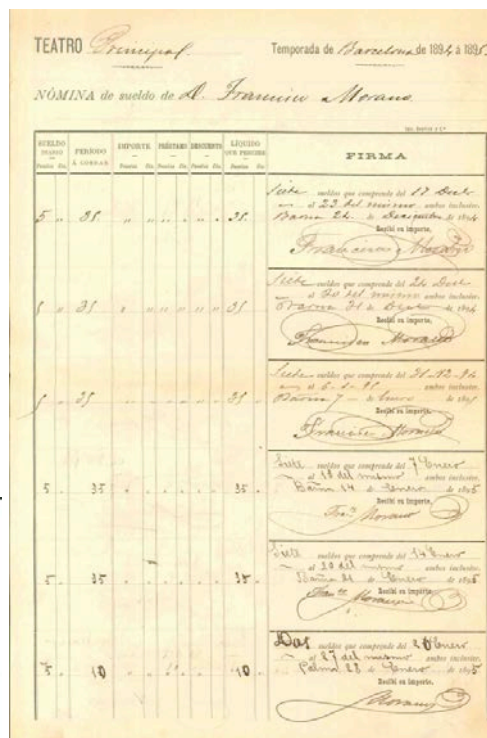 TEATRO Principal. Temporada de Barcelona de 1894 á 1895
NÓMINA de sueldo de D. Francisco Morano
SUELDO DIARIO PERÍODO Á COBRAR IMPORTE PRÉSTAMO DESCUENTO LÍQUIDO QUE PERCIBE FIRMA
Siete sueldos que comprende del 17 Dicbre
al 23 del mismo ambos inclusive.
5 " 35 " " " " " 35. Barna 24 de Diciembre de 1894
Recibí su importe,
Francisco Morano
Siete sueldos que comprende del 24 Dicbre
al 30 del mismo ambos inclusive.
5 " 35 " " " " " 35 Barna 31 de Dicbre de 1894
Recibí su importe,
Francisco Morano
Siete sueldos que comprende del 31-12-94
al 6-1-95 ambos inclusive.
5 35 35 Barna 7 de Enero de 1895
Recibí su importe,
Francisco Morano
Siete sueldos que comprende del 7 Enero
al 13 del mismo ambos inclusive.
5 35 35 Barna 14 de Enero de 1895
Recibí su importe,
Franco Morano
Siete sueldos que comprende del 14 Enero
al 20 del mismo ambos inclusive.
5 35 35 Barna 21 de Enero de 1895
Recibí su importe,
Franco Morano
Dos sueldos que comprende del Enero
al 27 del mismo ambos inclusive.
5 10 10 Palma 28 de Enero de 1895
Recibí su importe,
Morano